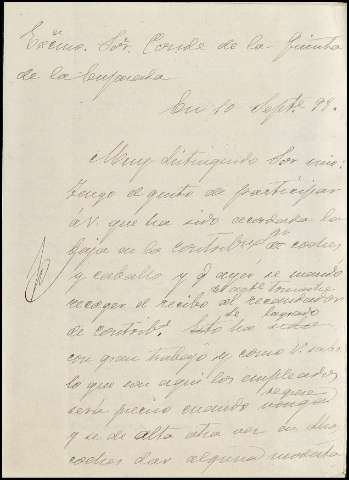 Excmo. Sor. Conde de la Quinta
de la Enjarada
En 10 Septe. 98.
Muy distinguido Sor mio:
Tengo el gusto de participar
á V. que ha sido acordada la
baja en la contribon. de coches
y caballo y q ayer se mandó
recoger el recibo al recaudador
de contribs. Esto ha
se logrado
con gran trabajo y, como V. sabe
lo que son aquí los empleados
será preciso cuando regrese
y se dé alta otra vez en los
coches dar alguna modesta